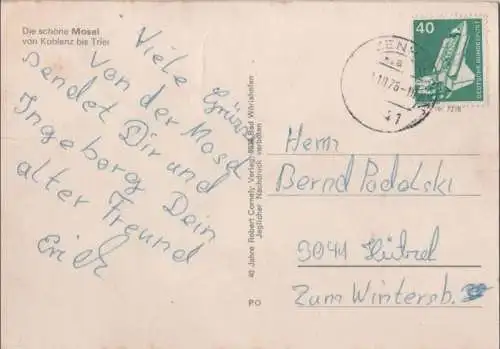 Die schöne Mosel
von Koblenz bis Trier
Viele Grüße
von der Mosel
sendet Dir und
Ingeborg Dein
alter Freund
Erich
40 Jahre Robert Comely Verlag, Bad Wörishofen
Jeglicher Nachdruck verboten
PO
40
DEUTSCHE BUNDESPOST
Herrn
Bernd Podolski
3041 Hützel
Zum Wintersb.